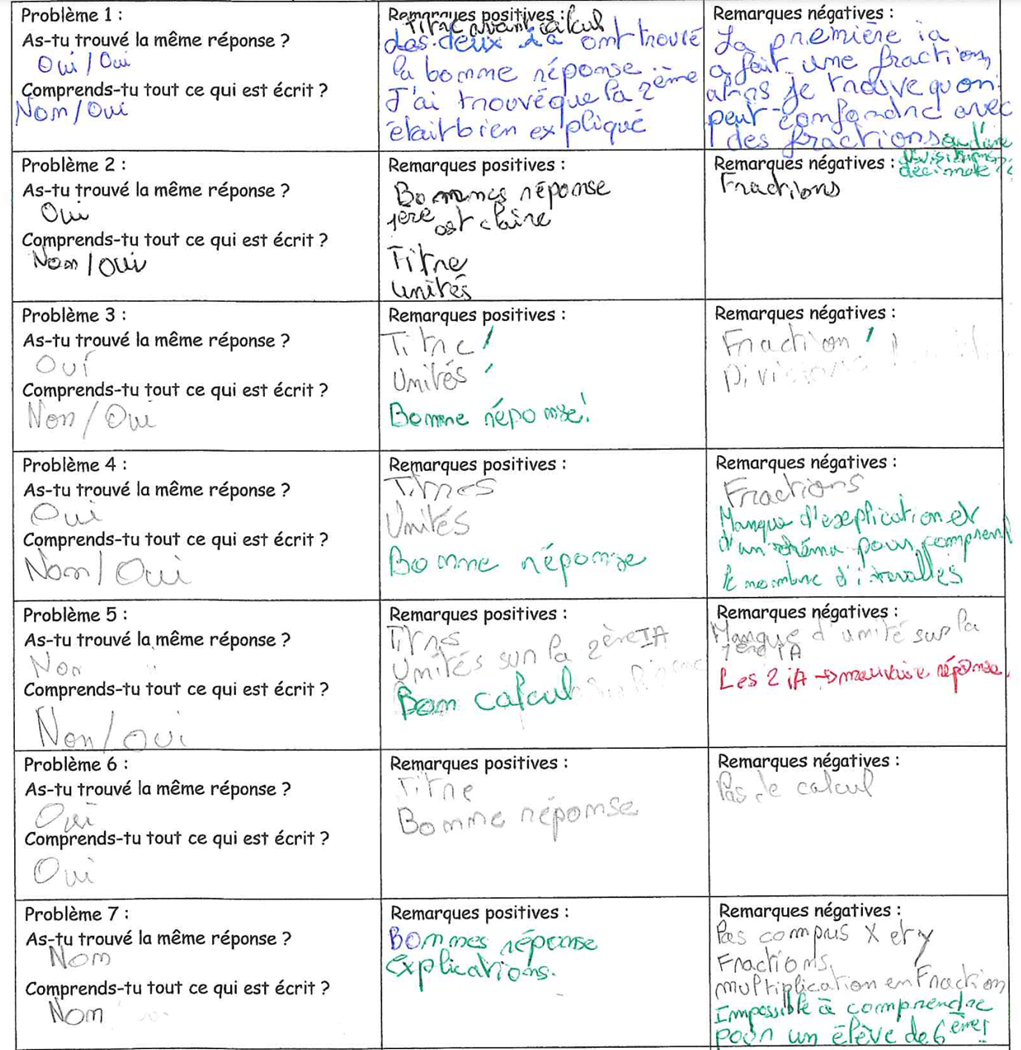 Problème 1 :
As-tu trouvé la même réponse ?
Oui / Oui
Comprends-tu tout ce qui est écrit ?
Non / Oui
Remarques positives :
Titre avant calcul
Les deux ia ont trouvé
la bonne réponse.
J'ai trouvé que la 2ème
était bien expliqué
Remarques négatives :
La première ia
a fait une fraction,
alors je trouve qu'on
peut confondre avec
des fractions
Problème 2 :
As-tu trouvé la même réponse ?
Oui
Comprends-tu tout ce qui est écrit ?
Non / Oui
Remarques positives :
Bonnes réponse
1ère est claire
Titre
Unités
Remarques négatives :
Fractions
Problème 3 :
As-tu trouvé la même réponse ?
Oui
Comprends-tu tout ce qui est écrit ?
Non / Oui
Remarques positives :
Titre !
Unités
Bonne réponse !
Remarques négatives :
Fraction !
Divisions
Problème 4 :
As-tu trouvé la même réponse ?
Oui
Comprends-tu tout ce qui est écrit ?
Non / Oui
Remarques positives :
Titres
Unités
Bonne réponse
Remarques négatives :
Fractions
Manque d'explication et
d'un schéma pour comprend
le nombre d'
Problème 5 :
As-tu trouvé la même réponse ?
Non
Comprends-tu tout ce qui est écrit ?
Non / oui
Remarques positives :
Titres
Unités sur la 2ère IA
Bon calcul
Remarques négatives :
Manque d'unité sur la
1ère IA
Les 2 iA → mauvaise réponse.
Problème 6 :
As-tu trouvé la même réponse ?
Oui
Comprends-tu tout ce qui est écrit ?
Oui
Remarques positives :
Titre
Bonne réponse
Remarques négatives :
Pas de calcul
Problème 7 :
As-tu trouvé la même réponse ?
Non
Comprends-tu tout ce qui est écrit ?
Non
Remarques positives :
Bonnes réponse
Explications.
Remarques négatives :
Pas compris X et y
Fractions
multiplication en Fraction
Impossible à comprendre
pour un élève de 6ème!